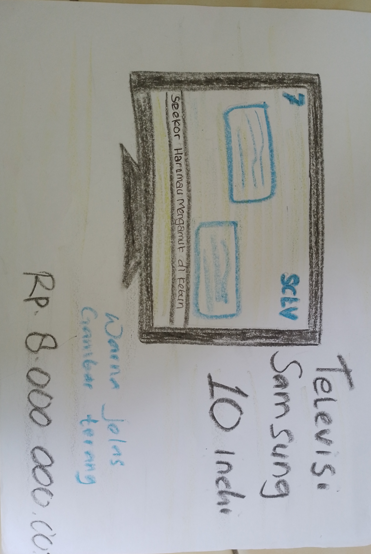 Televisi
Samsung
10 Inchi
7 SCLV
Seekor Harimau Mengamuk di Kebun
Warna jelas
Gambar terang
Rp. 8.000 000.00